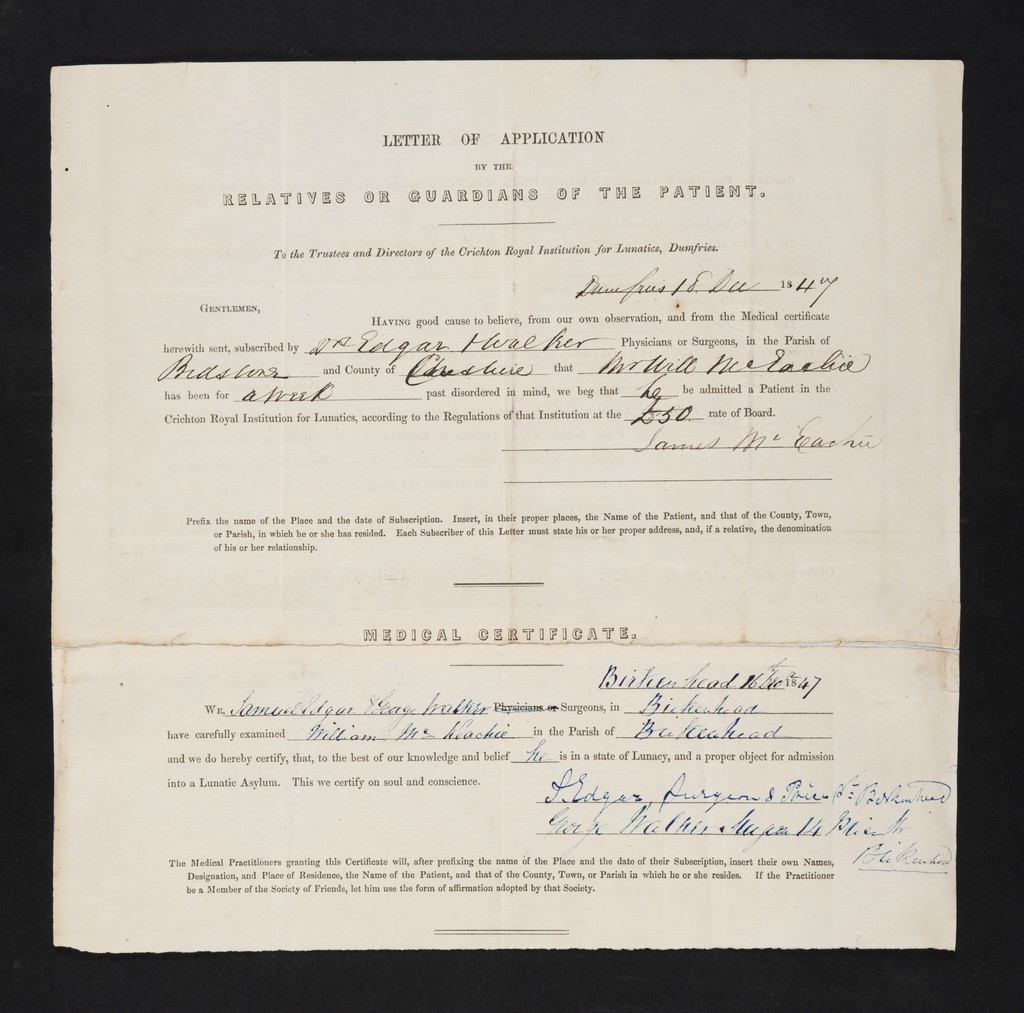 LETTER OF APPLICATION
BY THE
RELATIVES OR GUARDIANS OF THE PATIENT.
To the Trustees and Directors of the Crichton Royal Institution for Lunatics, Dumfries.
Dumfries 18 Dec 1847
GENTLEMEN,
HAVING good cause to believe, from our own observation, and from the Medical certificate
herewith sent, subscribed by Drs Edgar & Walker Physicians or Surgeons, in the Parish of
and County of Cheshire that Mr Will McEachie
has been for a week past disordered in mind, we beg that he be admitted a Patient in the
Crichton Royal Institution for Lunatics, according to the Regulations of that Institution at the £50 rate of Board.
James McEachie
Prefix the name of the Place and the date of Subscription. Insert, in their proper places, the Name of the Patient, and that of the County, Town,
or Parish, in which he or she has resided. Each Subscriber of this Letter must state his or her proper address, and, if a relative, the denomination
of his or her relationship.
MEDICAL CERTIFICATE.
Birkenhead 16th Decr 1847
WE, Samuel Edgar & George Walker Physicians or Surgeons, in Birkenhead
have carefully examined William McKeachie in the Parish of Birkenhead
and we do hereby certify, that, to the best of our knowledge and belief he is in a state of Lunacy, and a proper object for admission
into a Lunatic Asylum. This we certify on soul and conscience.
S. Edgar, Surgeon 8 Price St. Birkenhead
George Walker Surgeon 14
Birkenhead
The Medical Practitioners granting this Certificate will, after prefixing the name of the Place and the date of their Subscription, insert their own Names,
Designation, and Place of Residence, the Name of the Patient, and that of the County, Town, or Parish in which he or she resides. If the Practitioner
be a Member of the Society of Friends, let him use the form of affirmation adopted by that Society.